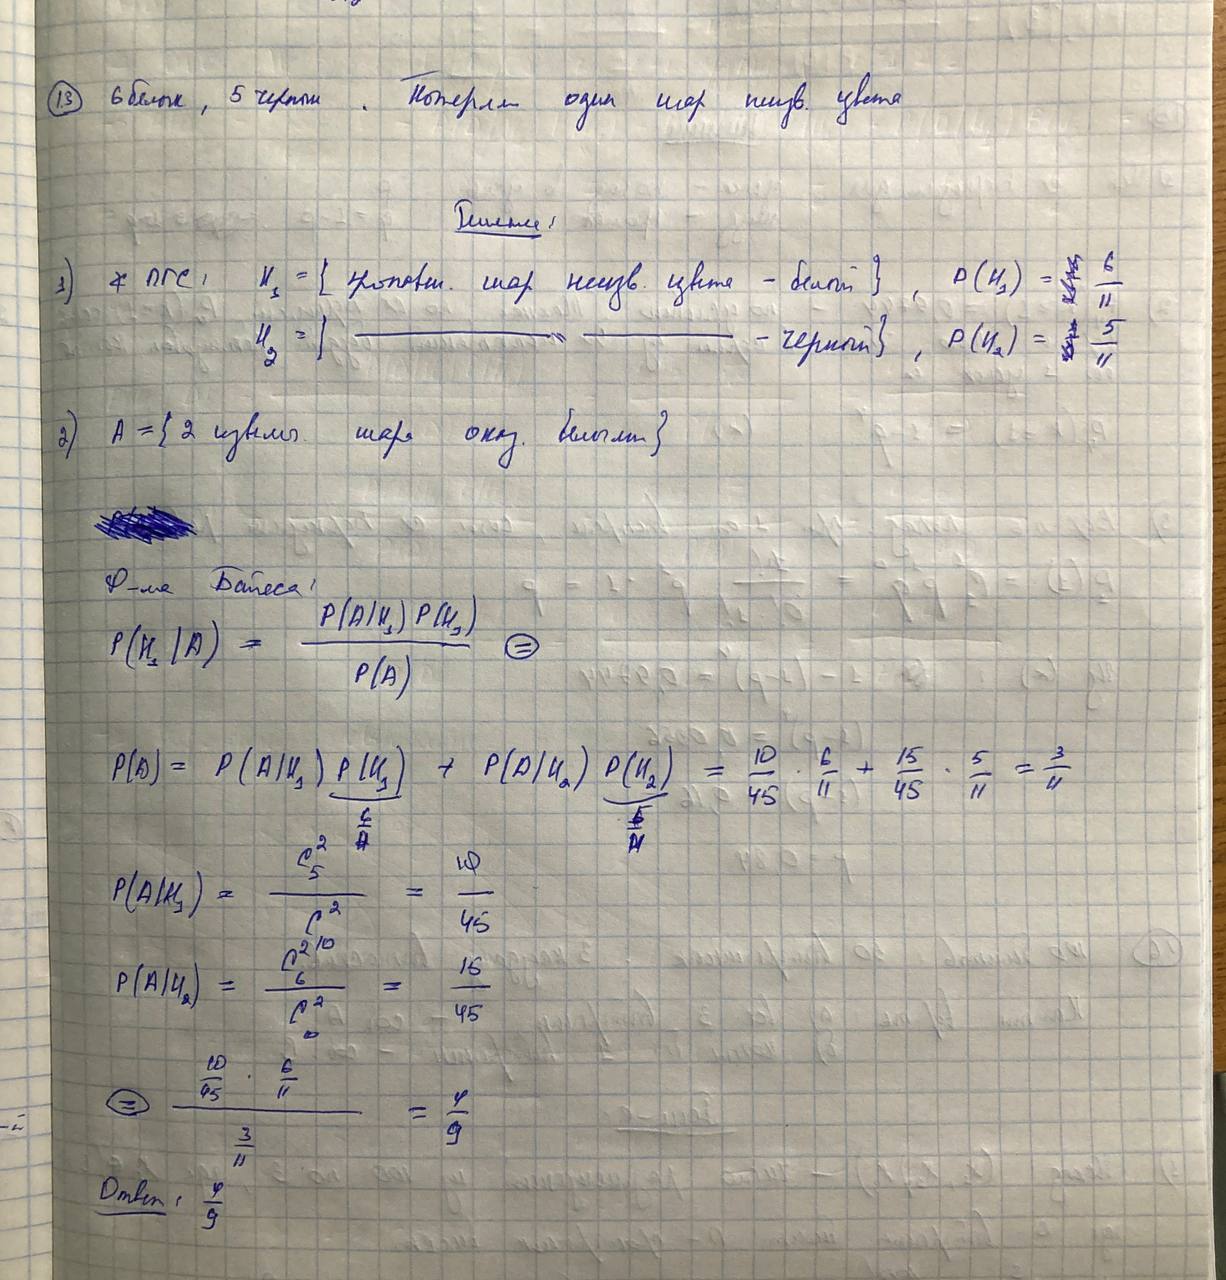 13 6 белых, 5 черных. Потеряли один шар неизв. цвета
Решение:
1) ПГС: H₁ = { шар неизв. цвета - белый }, P(H₁) = 6/11
H₂ = { ——— " ——— - черный}, P(H₂) = 5/11
2) A = {2 шара оказ. белыми}
Ф-ла Байеса:
P(H₁|A) = P(A|H₁) P(H₁) / P(A) =
P(A) = P(A|H₁) P(H₁) + P(A|H₂) P(H₂) = 10/45 · 6/11 + 15/45 · 5/11 = 3/11
6/11 5/11
P(A|H₁) = C₅² / C₁₀² = 10/45
P(A|H₂) = C₆² / C₁₀² = 15/45
= (10/45 · 6/11) / (3/11) = 4/9
Ответ: 4/9